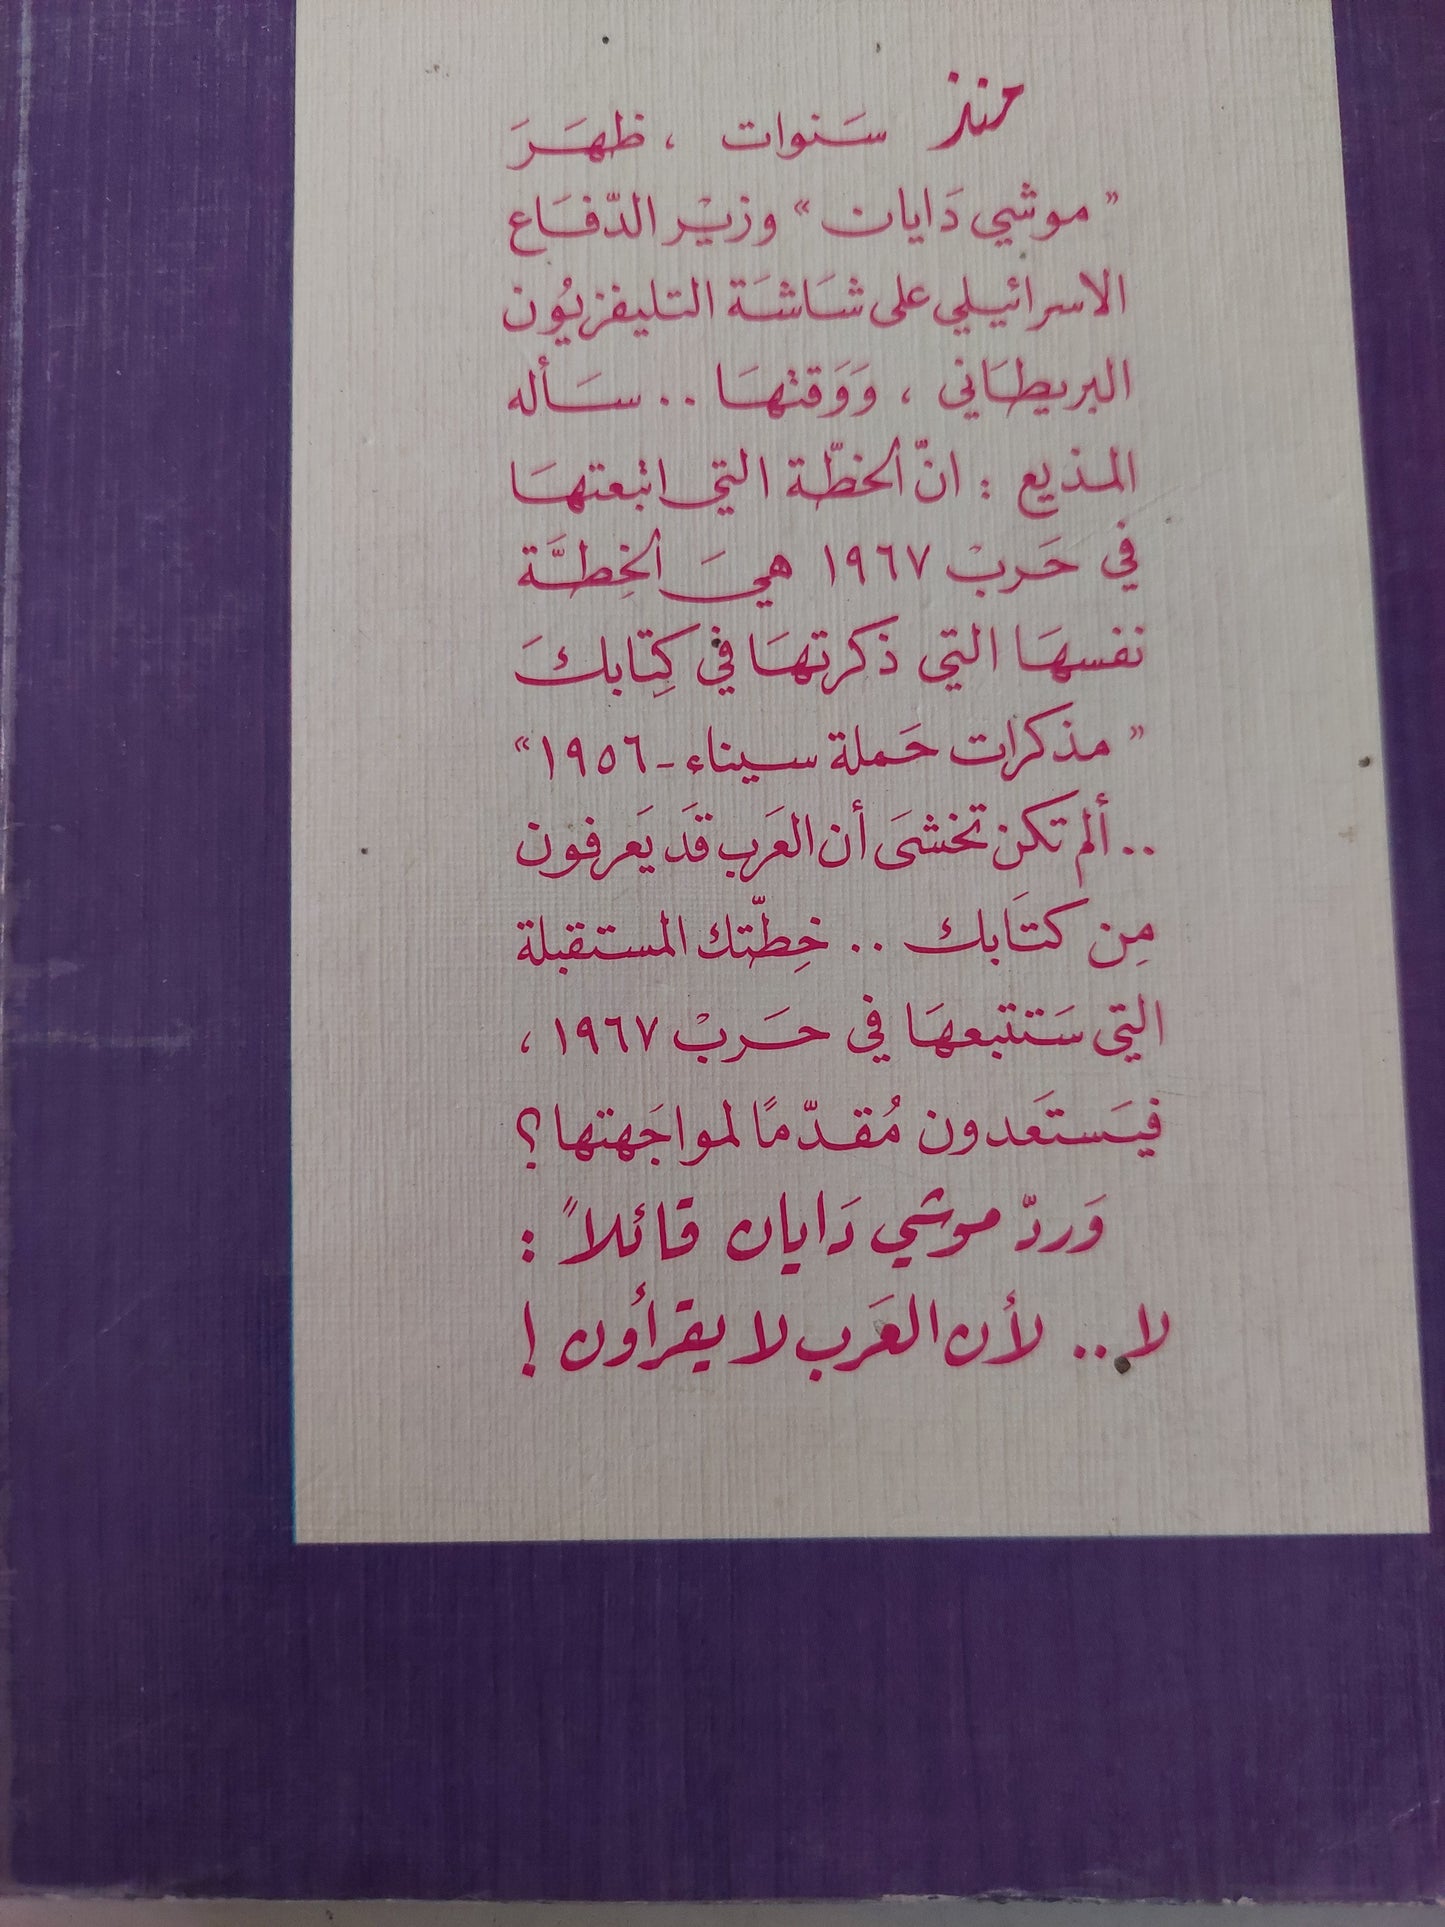 منذ سَنوات ، ظهَرَ
" موشي دَايان " وزيْر الدّفَاع
الاسرائيلي على شَاشَة التليفزيُون
البريطَاني ، وَوَقتهَا .. سَأله
المذيع : انّ الخطّة التي اتبعتهَا
في حَربْ ١٩٦٧ هيَ الخِطَّة
نفسهَا التي ذكرتهَا في كِتابكَ
" مذكرات حَملة سيناء - ١٩٥٦ "
.. ألم تكن تخشىَ أن العَرب قَد يَعرفون
مِن كتَابك .. خِطّتك المستقبلة
التي سَتتبعهَا في حَربْ ١٩٦٧ ،
فيَستَعدون مُقدّمًا لمواجَهتها ؟
وَردّ موشي دَايان قائلاً :
لا .. لأن العَرب لا يقرأون !